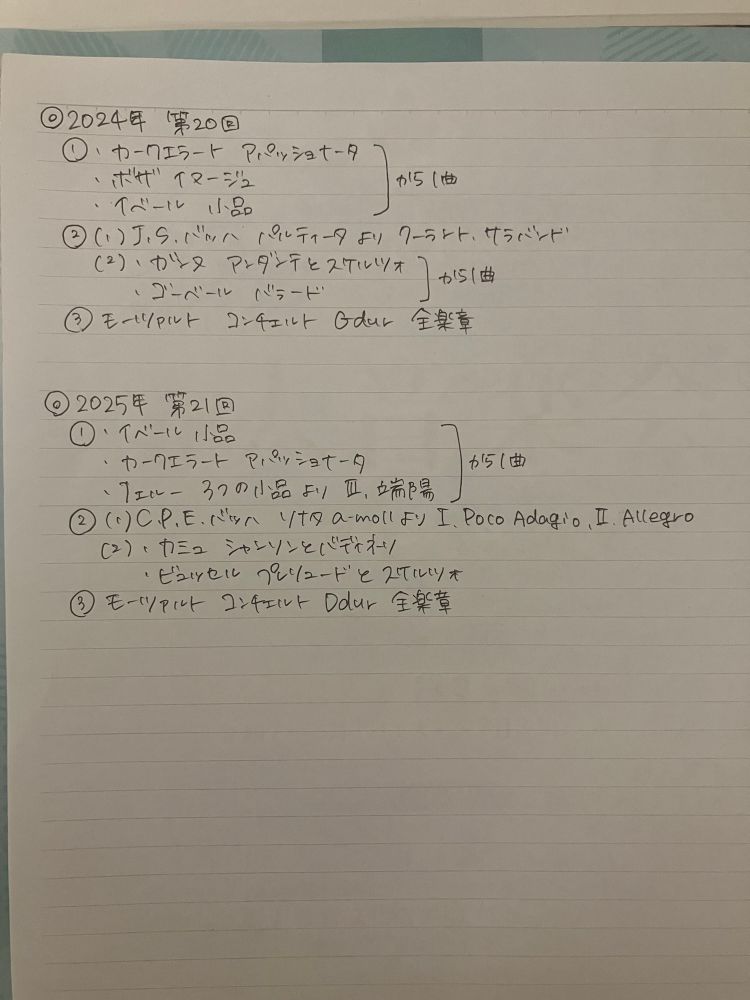 ◎2024年 第20回
①・カークエラート アパッショナータ
・ボザ イマージュ
・イベール 小品
から1曲
②(1)J.S.バッハ パルティータより クーラント、サラバンド
(2)・ガンヌ アンダンテとスケルツォ
・ゴーベール バラード
から1曲
③モーツァルト コンチェルト Gdur 全楽章
◎2025年 第21回
①・イベール 小品
・カークエラート アパッショナータ
・フェルー 3つの小品より Ⅲ.端陽
から1曲
②(1)C.P.E.バッハ ソナタ a-mollより Ⅰ.Poco Adagio、Ⅱ.Allegro
(2)・カミュ シャンソンとバディネーリ
・ビュッセル プレリュードとスケルツォ
③モーツァルト コンチェルト Ddur 全楽章